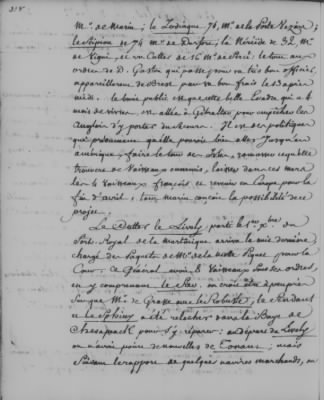 m. de Marin; le Zodiaque 74, M. de la Porte Vezins;
le Scipion de 74 m. de
de Vigni, et un Cutter de 16 M. de le tout aux
ordres de D. Gaston qui passe pour un très bon officier,
appareillerons de Brest par un bon frais le
midi. le bruit public est que cette belle Escadre qui a 6
mois de vivres, va allée à Gibraltar pour empêcher les
Anglois d'y porter du secours. Il est des politiques
qui présument qu'elle pouroit bien aller jusqu'en
amérique, faire le tour des Isles, ramasser ce qu'elle
trouvera de Vaisseaux ennemis, laisser dans ces mers
les 4 Vaisseaux françois, et revenir en Europe pour la
fin d'avril, tout marin conçoit la possibilité de ce
projet.
Le Cutter le Lively parti le 1er xbre du
Port Royal de la Martinique arriva la nuit dernière,
chargé des Paquets de M. de la Motte Piquet pour la
Cour. Ce Général avoit 8 Vaisseaux sous ses ordres,
en y comprenant le Fier. on croit être à peu près
sur que M. de Grasse avec le Robuste, le Fendant
et le Sphinx a été relacher dans la Baye de
Chesapeack pour s'y réparer: au départ du Lively
on n'avoit point de nouvelles du Tonant; mais
suivant le rapport de quelques navires marchands, on